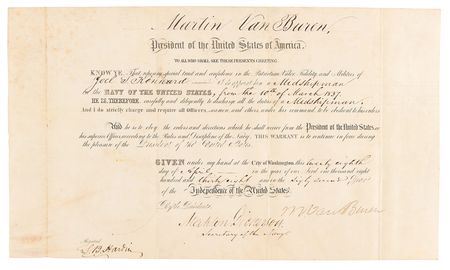 Martin Van Buren,
President of the United States of America.
TO ALL WHO SHALL SEE THESE PRESENTS GREETING:
KNOW YE, That reposing special trust and confidence in the Patriotism, Valor, Fidelity, and Abilities of
Joel S. Kennard I do appoint him a Midshipman
in the NAVY OF THE UNITED STATES, from the 10th of March 1837.
HE IS, THEREFORE, carefully and diligently to discharge all the duties of a Midshipman,
And I do strictly charge and require all Officers, seamen, and others, under his command, to be obedient to his orders
And he is to obey the orders and directions which he shall receive from the President of the United States, or
his superior Officers, according to the Rules and Discipline of the Navy. THIS WARRANT is to continue in force during
the pleasure of the President of the United States.
GIVEN under my hand at the City of Washington, this twenty eighth
day of April in the year of our Lord one thousand eight
hundred and thirty eight and in the sixty second Year
of the Independence of the United States.
By the President
M Van Buren
Mahlon Dickerson,
Secretary of the Navy
Registered